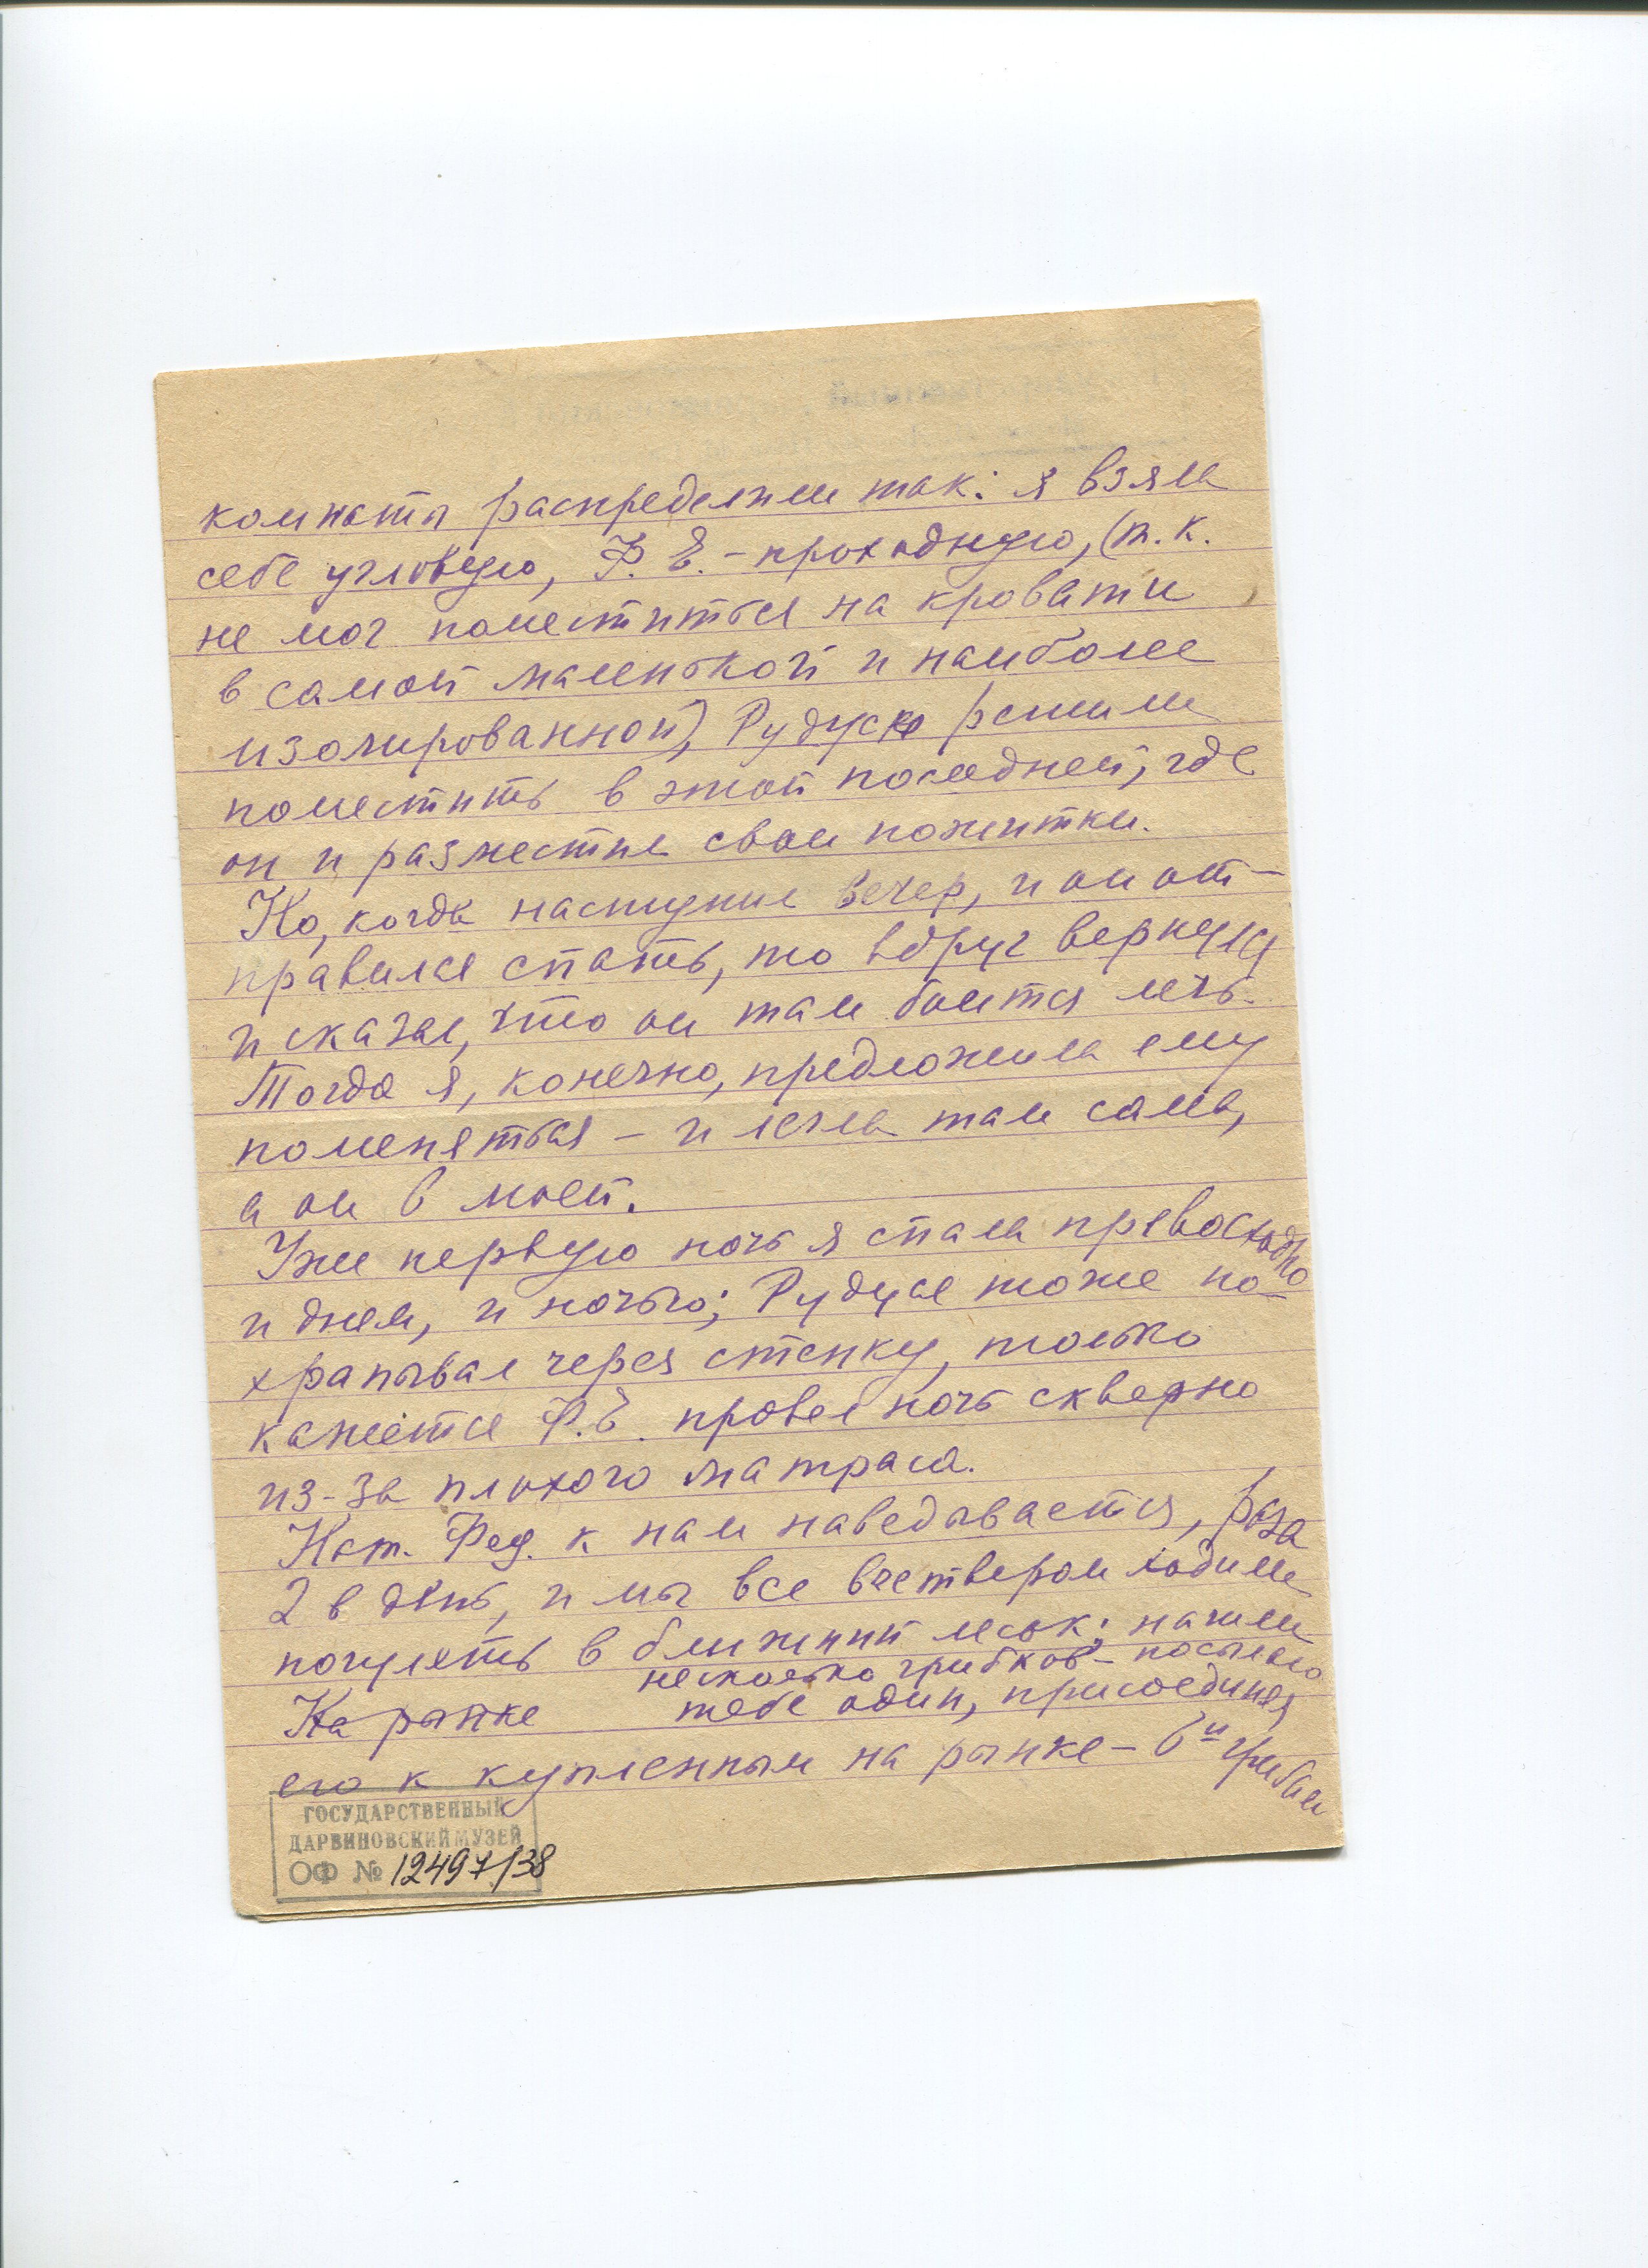 комнаты распределили так: я взяла
себе угловую, Ф. Е. – проходную, (т. к.
не мог поместиться на кровати
в самой маленькой и наиболее
изолированной), Рудуську решили
поместить в этой последней, где
он и разместил свои пожитки.
Но, когда наступил вечер, и он от-
правился спать, то вдруг вернулся
и сказал, что он там боится лечь.
Тогда я, конечно, предложила ему
поменяться – и легла там сама,
а он в моей.
Уже первую ночь я спала превосходно
и днем, и ночью; Рудуся тоже по-
храпывал через стенку, только
кажется Ф. Е. провел ночь скверно
из-за плохого матраса.
Нат. Фед. к нам наведывается, раза
2 в день, и мы все вчетвером ходили
погулять в ближний лесок; нашли
несколько грибков – посылаю
На рынке тебе один, присоединяя
его к купленным на рынке – 6и грибам
ГОСУДАРСТВЕННЫЙ
ДАРВИНОВСКИЙ МУЗЕЙ
ОФ № 12497/38